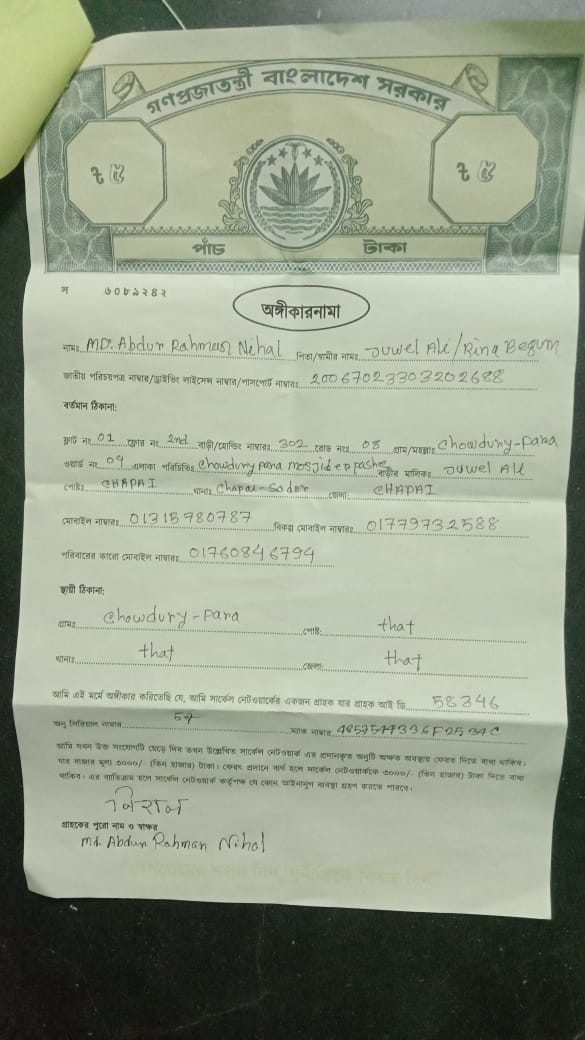 গণপ্রজাতন্ত্রী বাংলাদেশ সরকার
৳ ৫ ৳ ৫
পাঁচ টাকা
প ৬০৮৯২৪২
অঙ্গীকারনামা
নামঃ MD. Abdur Rahman Nihal পিতা/স্বামীর নামঃ Juwel Ali/Rina Begum
জাতীয় পরিচয়পত্র নাম্বার/ড্রাইভিং লাইসেন্স নাম্বার/পাসপোর্ট নাম্বারঃ 20067023303202688
বর্তমান ঠিকানা:
ফ্লাট নং 01 ফ্লোর নং 2nd বাড়ী/হোল্ডিং নাম্বারঃ 302 রোড নংঃ 08 গ্রাম/মহল্লাঃ Chowduny-para
ওয়ার্ড নং 09 এলাকা পরিচিতিঃ Chowduny para mosjid er pashe বাড়ীর মালিকঃ Juwel Ali
পোষ্টঃ CHAPAI থানাঃ Chapai-Sodor জেলা: CHAPAI
মোবাইল নাম্বারঃ 01315780787 বিকল্প মোবাইল নাম্বারঃ 01779732588
পরিবারের কারো মোবাইল নাম্বারঃ 01760846794
স্থায়ী ঠিকানা:
গ্রামঃ Chowdury-para পোষ্ট: that
থানাঃ that জেলা: that
আমি এই মর্মে অঙ্গীকার করিতেছি যে, আমি সার্কেল নেটওয়ার্কের একজন গ্রাহক যার গ্রাহক আই ডি 58346
অনু সিরিয়াল নাম্বার 57 ম্যাক নাম্বার 4857544336F2534C
আমি যখন উক্ত সংযোগটি ছেড়ে দিব তখন উল্লেখিত সার্কেল নেটওয়ার্ক এর প্রদানকৃত অনুটি অক্ষত অবস্থায় ফেরত দিতে বাধ্য থাকিব।
যার বাজার মূল্য ৩০০০/- (তিন হাজার) টাকা। ফেরৎ প্রদানে ব্যর্থ হলে সার্কেল নেটওয়ার্ককে ৩০০০/- (তিন হাজার) টাকা দিতে বাধ্য
থাকিব। এর ব্যতিক্রম হলে সার্কেল নেটওয়ার্ক কর্তৃপক্ষ যে কোন আইনানুগ ব্যবস্থা গ্রহণ করতে পারবে।
নিহাল
গ্রাহকের পুরো নাম ও স্বাক্ষর
Md. Abdur Rahman Nihal